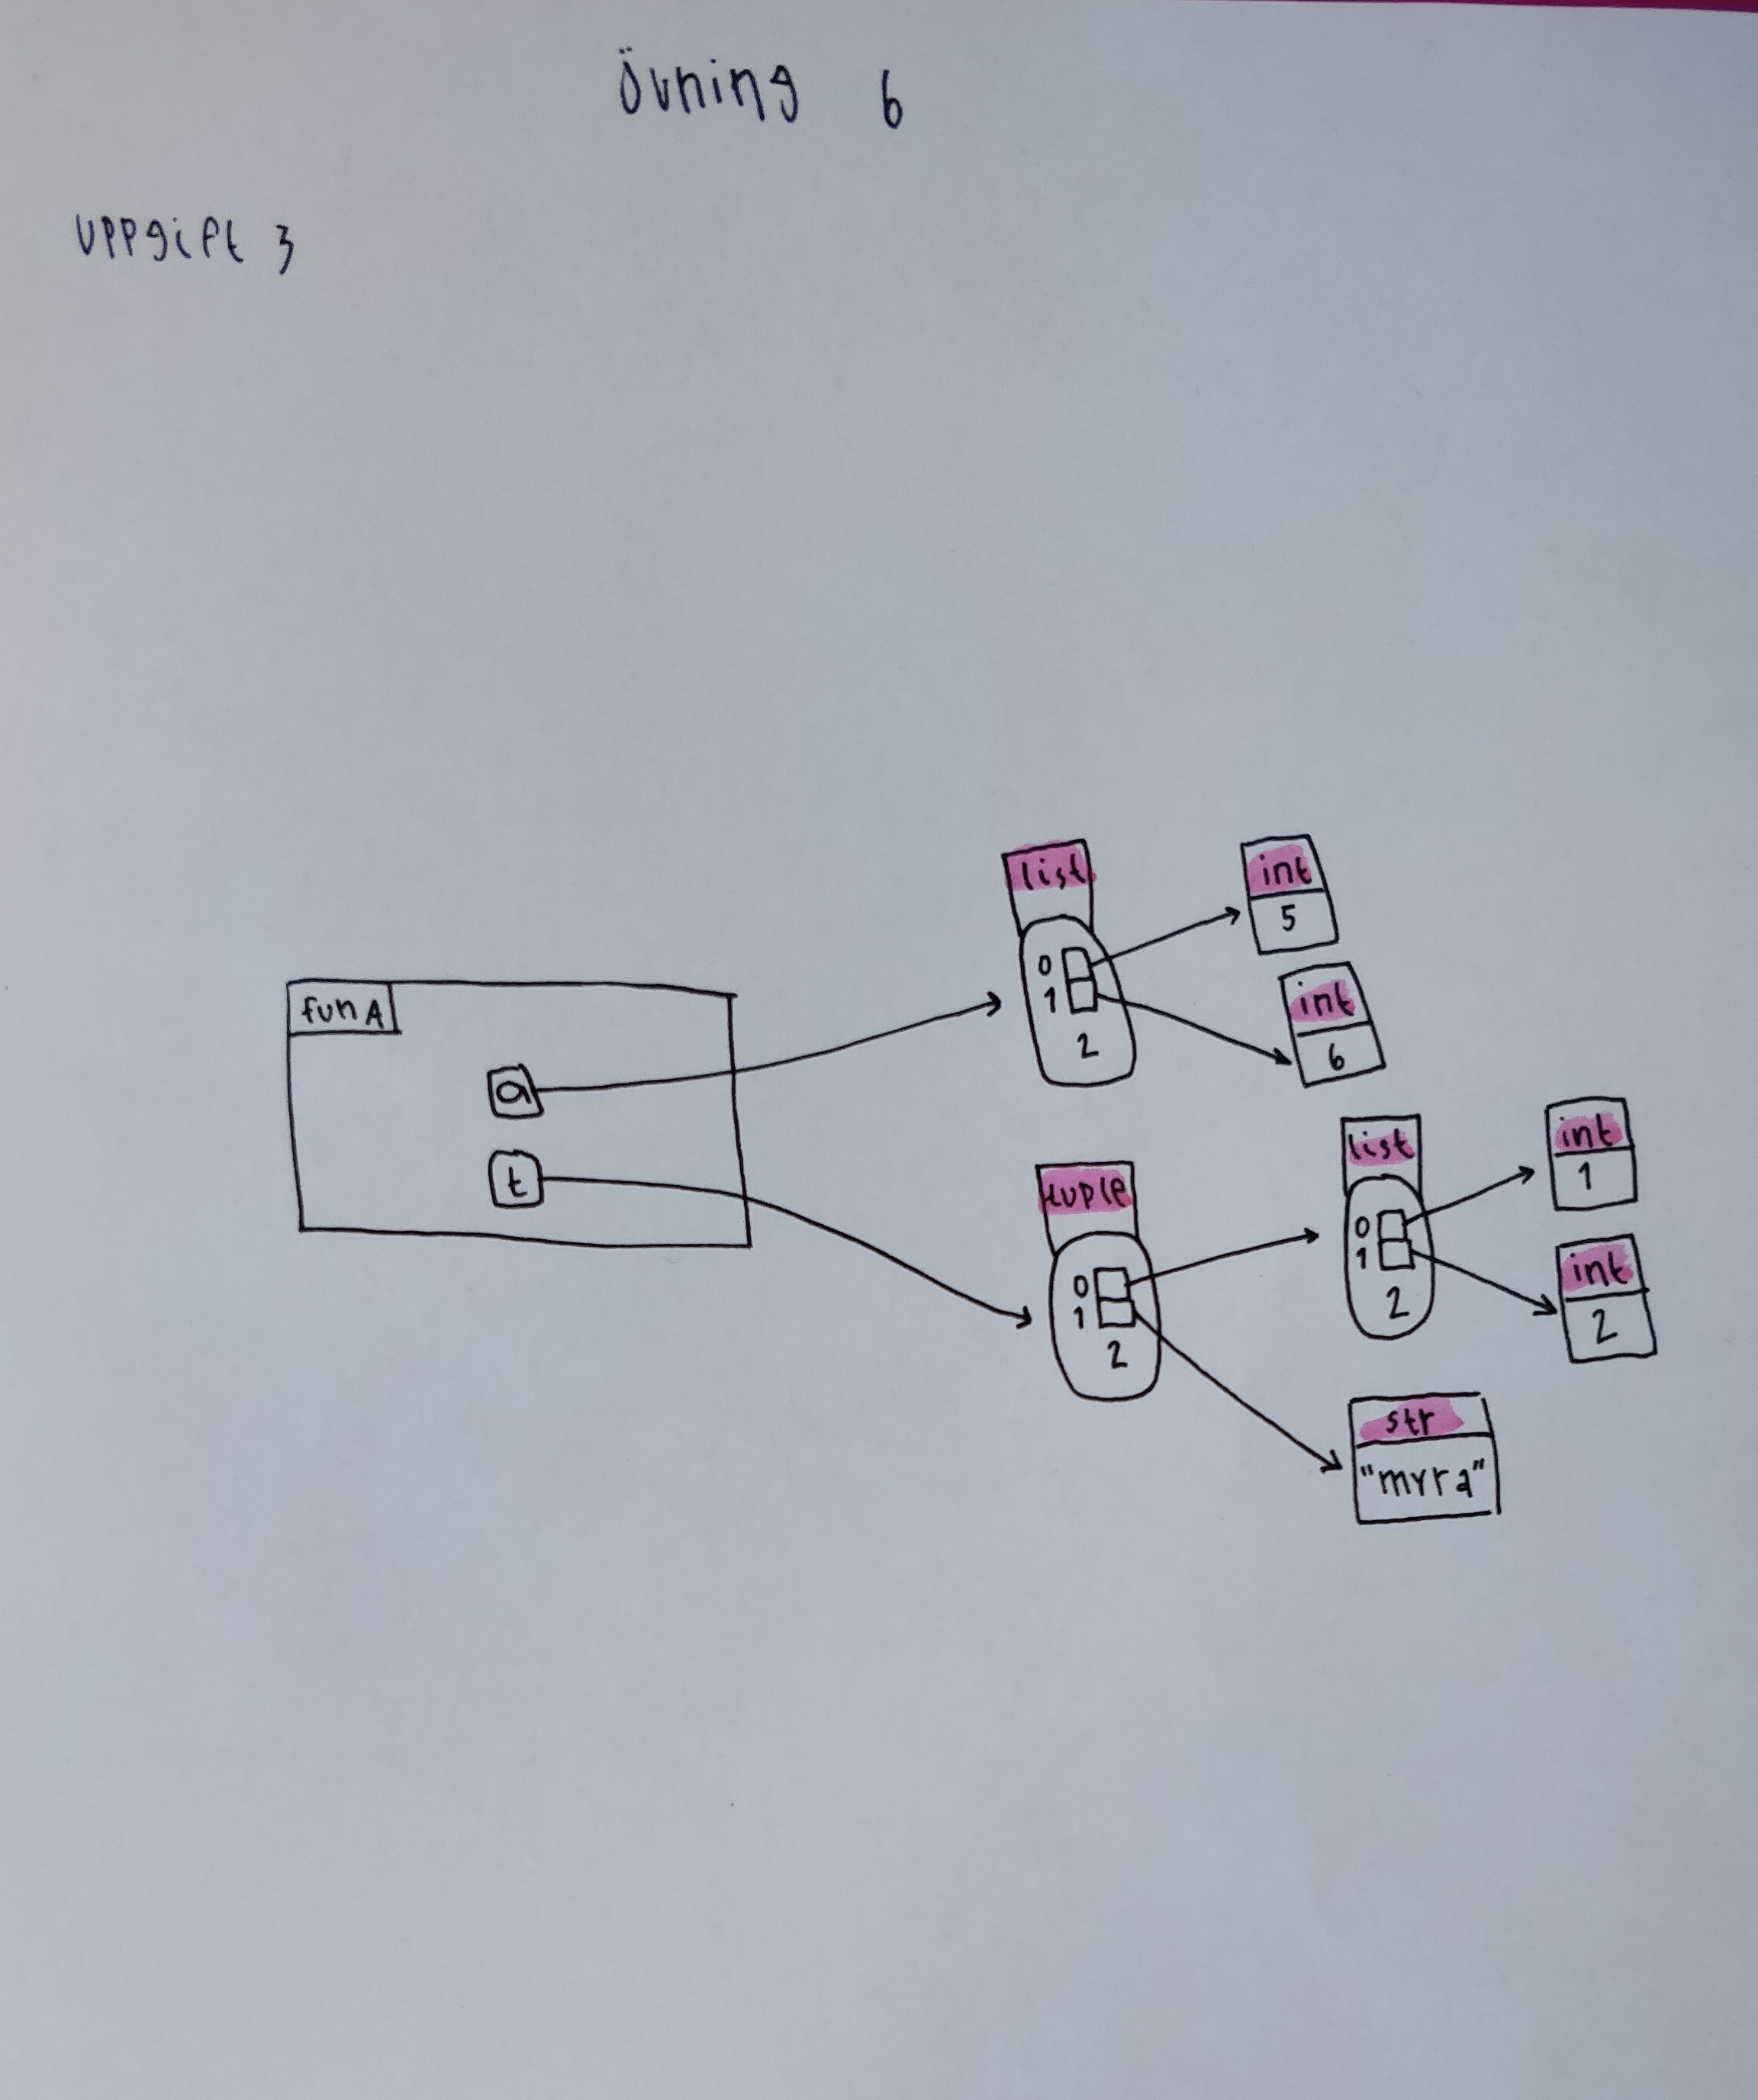 Övning 6
Uppgift 3
funA
a
t
list
0
1
2
int
5
int
6
tuple
0
1
2
list
0
1
2
int
1
int
2
str
"myra"